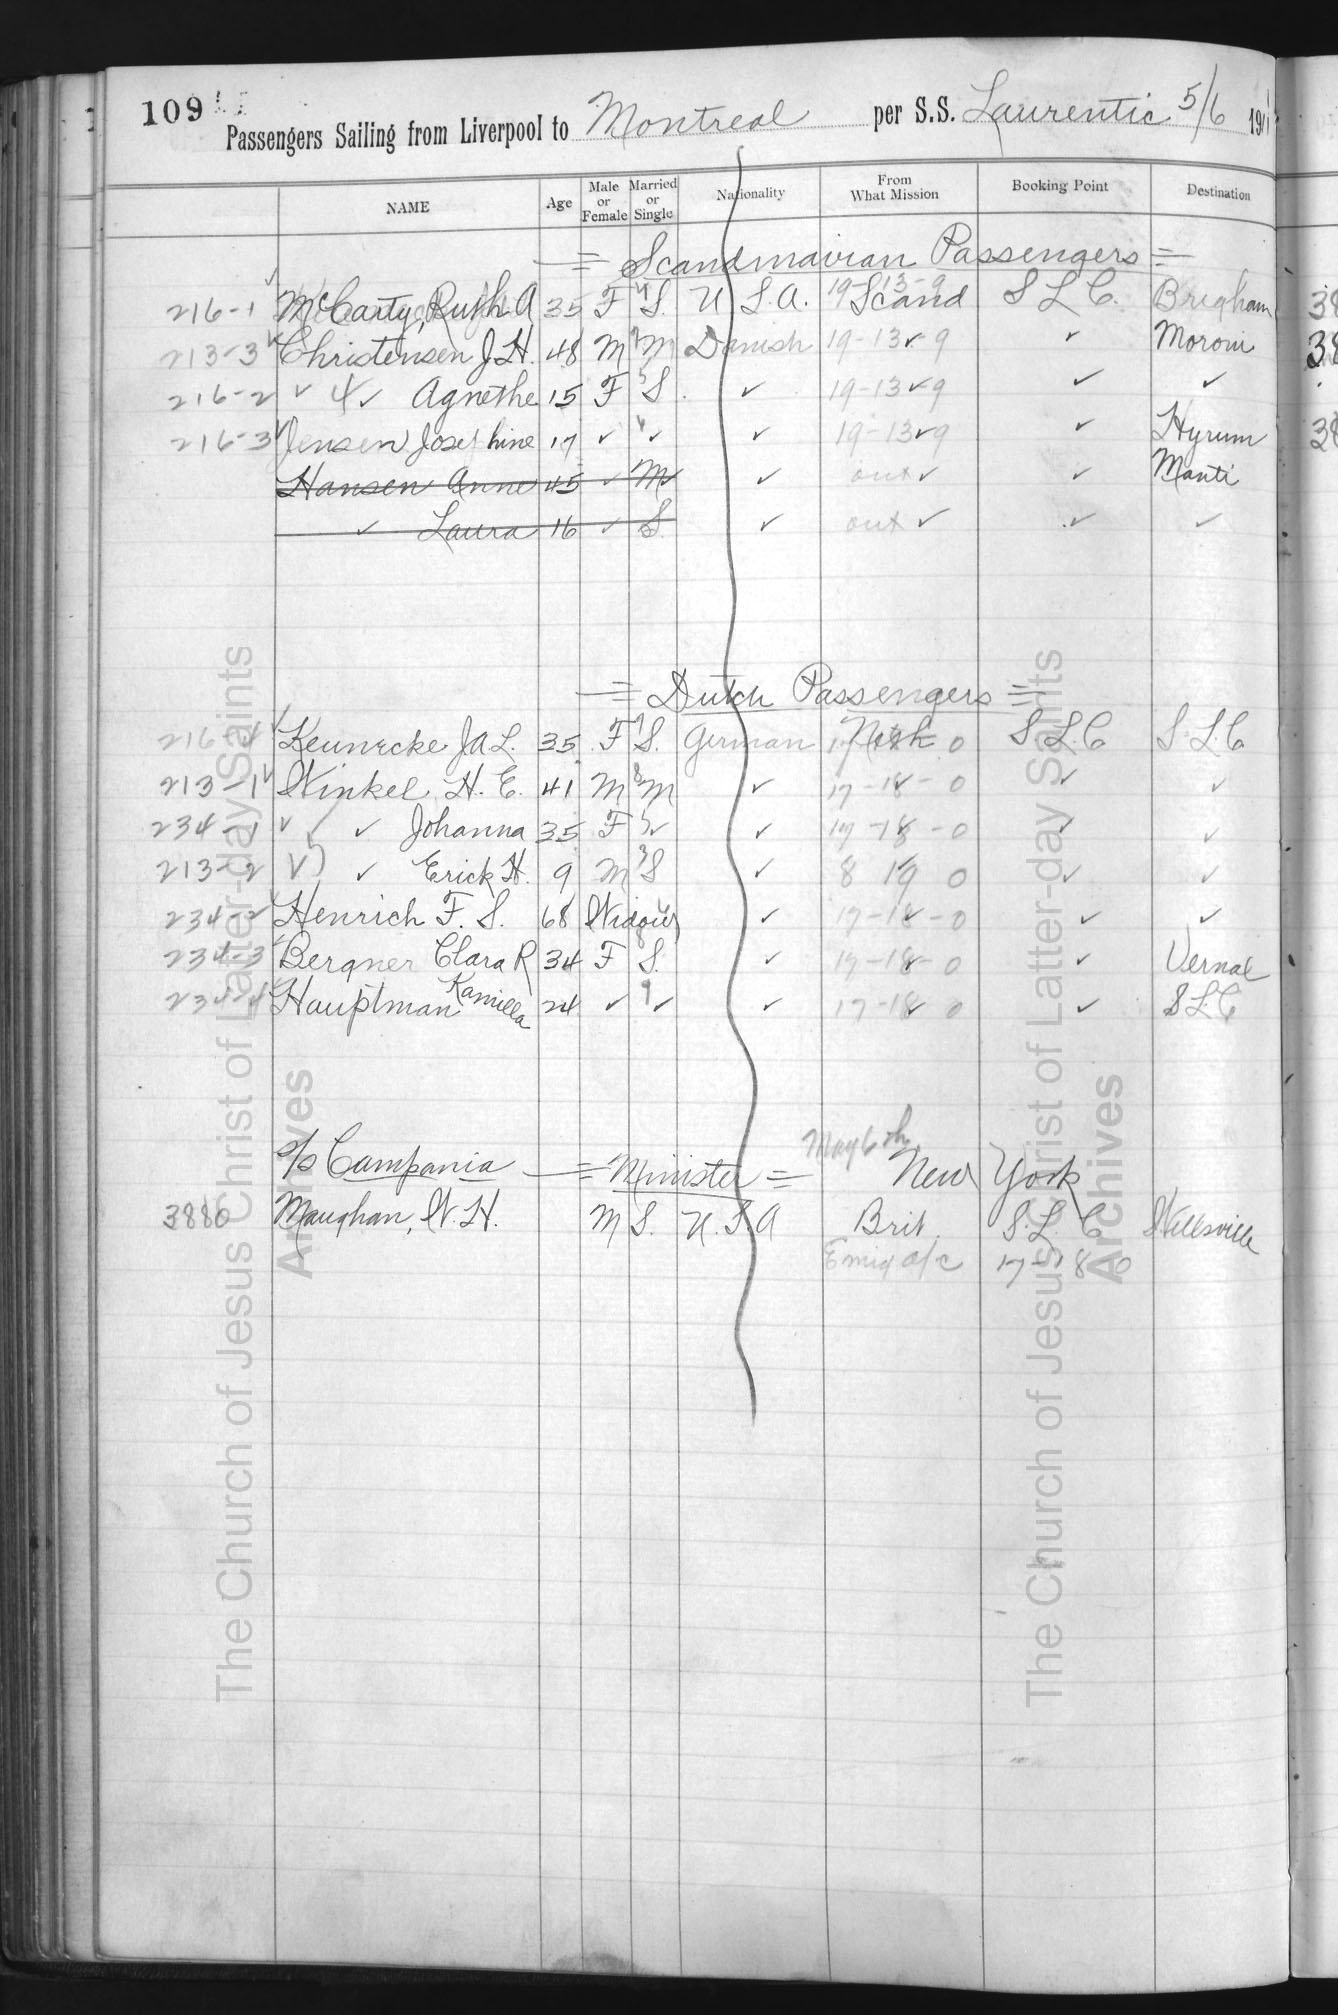 109
Passengers Sailing from Liverpool to Montreal per S.S. Laurentic 5/6 191
NAME Age Male or Female Married or Single Nationality From What Mission Booking Point Destination
= Scandinavian Passengers =
216-1 McCarty, Ruth A 35 F S. U.S.A. Scand 19-13-9 S L C. Brigham
213-3 Christensen J.H. 48 M M Danish 19-13-9 ✓ Moroni
216-2 ✓ ✓ Agnethe 15 F S. ✓ 19-13-9 ✓ ✓
216-3 Jensen Josephine 17 ✓ ✓ ✓ 19-13-9 ✓ Hyrum
Hansen Anne 45 ✓ M ✓ out ✓ ✓ Manti
✓ Laura 16 ✓ S. ✓ out ✓ ✓ ✓
= Dutch Passengers =
216-4 Keunecke J.A.L. 35 F S. German S.L.C S.L.C
213-1 Winkel H. E. 41 M M ✓ 17-18-0 ✓ ✓
234-1 ✓ ✓ Johanna 35 F ✓ ✓ 17-18-0 ✓ ✓
213-2 ✓ Erick H. 9 M S ✓ 8 19 0 ✓ ✓
234-2 Henrich F. S. 68 Widow ✓ 17-18-0 ✓ ✓
234-3 Bergner Clara R 34 F S. ✓ 17-18-0 ✓ Vernal
234-4 Hauptman Kamilla 24 ✓ ✓ ✓ 17-18 0 ✓ S.L.C
S/S Campania = Minister = May 6th New York
3880 Maughan, W. H. M S. U.S.A Brit. S. L. C Wellsville
Emig o/c 17-18 0
The Church of Jesus Christ of Latter-day Saints
Archives
The Church of Jesus Christ of Latter-day Saints
Archives